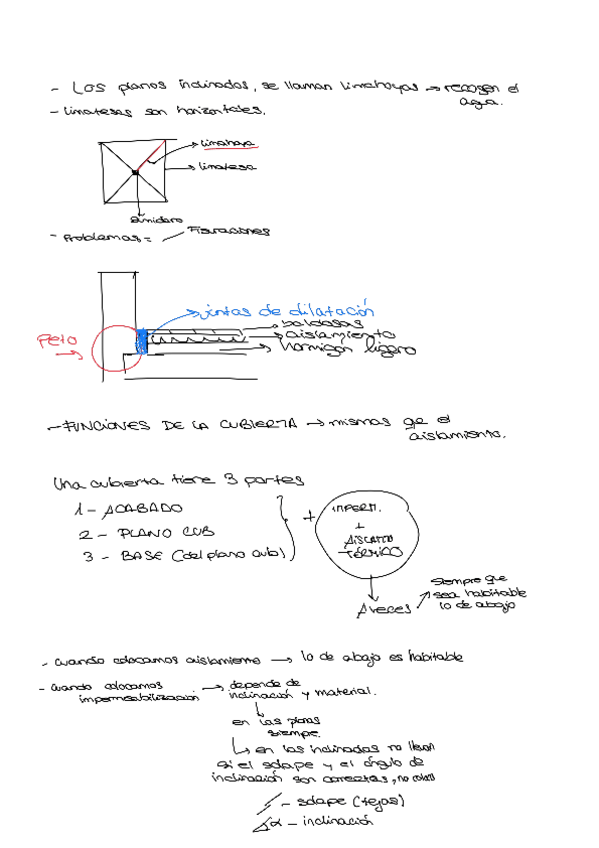 - Los planos inclinados, se llaman limahoyas → recogen el
agua.
- limatesas son horizontales.
limahoya
limatesa
Sumidero
- Problemas = Fisuraciones
juntas de dilatación
baldosas
aislamiento
hormigón ligero
Peto
- FUNCIONES DE LA CUBIERTA → mismas qe el
aislamiento.
Una cubierta tiene 3 partes
1 - ACABADO
2 - PLANO CUB
3 - BASE (del plano cub)
+
IMPERM.
+
AISLAMTO
TÉRMICO
A veces
Siempre que
sea habitable
lo de abajo
- cuando colocamos aislamiento → lo de abajo es habitable
- cuando colocamos
impermeabilización → depende de
inclinación y material.
en las planas
siempre.
en las inclinadas no llevan
si el solape y el ángulo de
inclinación son correctas, no
- solape (tejas)
α - inclinación